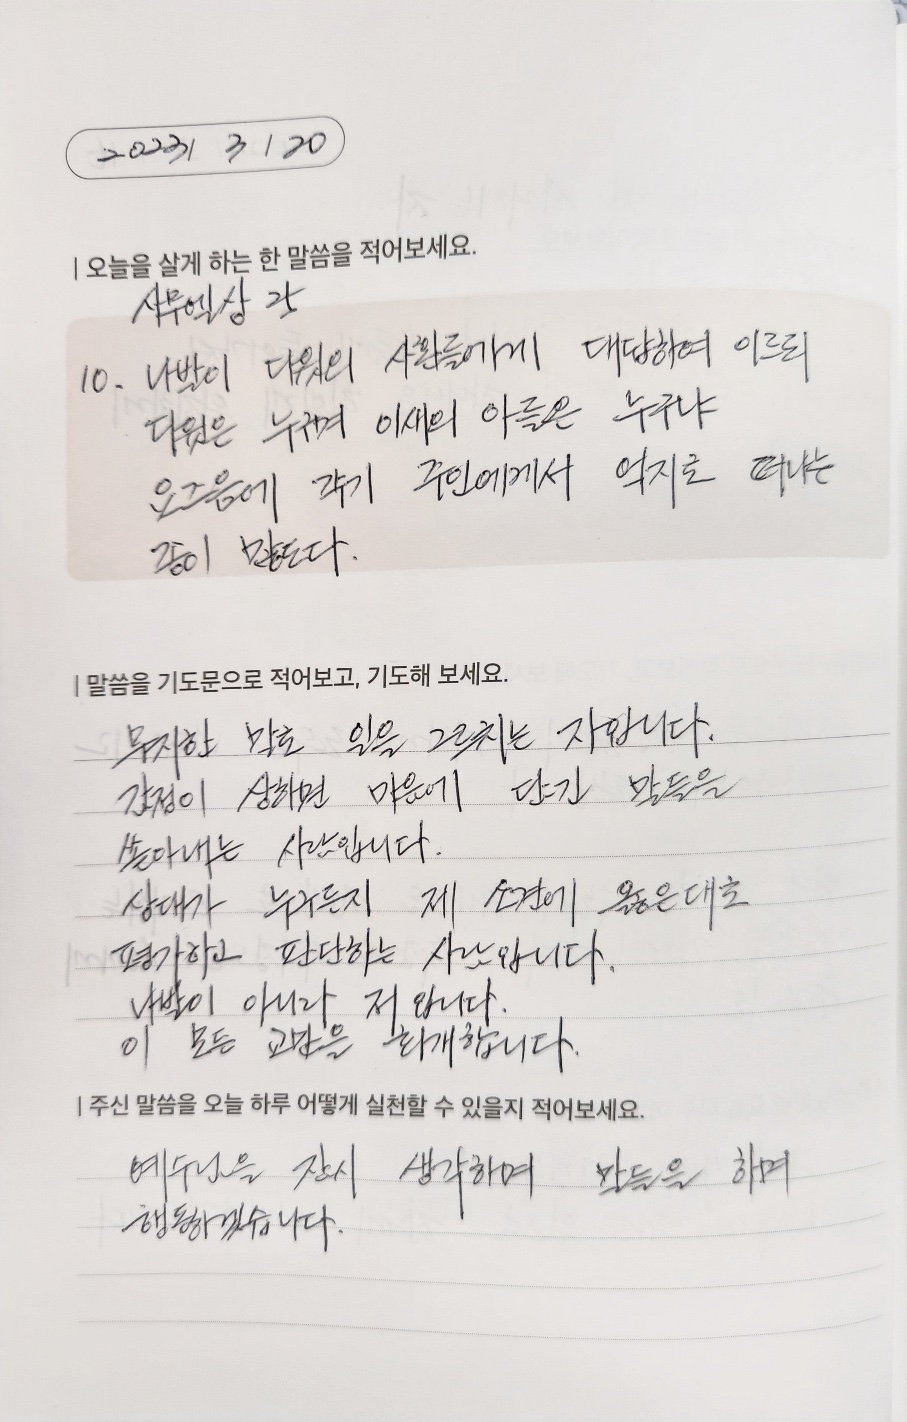 2023 / 3 / 20
| 오늘을 살게 하는 한 말씀을 적어보세요.
사무엘상 25
10. 나발이 다윗의 사환들에게 대답하여 이르되
다윗은 누구며 이새의 아들은 누구냐
요즈음에 각기 주인에게서 억지로 떠나는
종이 많도다.
| 말씀을 기도문으로 적어보고, 기도해 보세요.
무지한 말로 일을 그르치는 자입니다.
감정이 상하면 마음에 담긴 말들을
쏟아내는 사람입니다.
상대가 누구든지 제 소견에 옳은대로
평가하고 판단하는 사람입니다.
나발이 아니라 저 입니다.
이 모든 교만을 회개합니다.
| 주신 말씀을 오늘 하루 어떻게 실천할 수 있을지 적어보세요.
예수님을 잠시 생각하며 말들을 하며
행동하겠습니다.